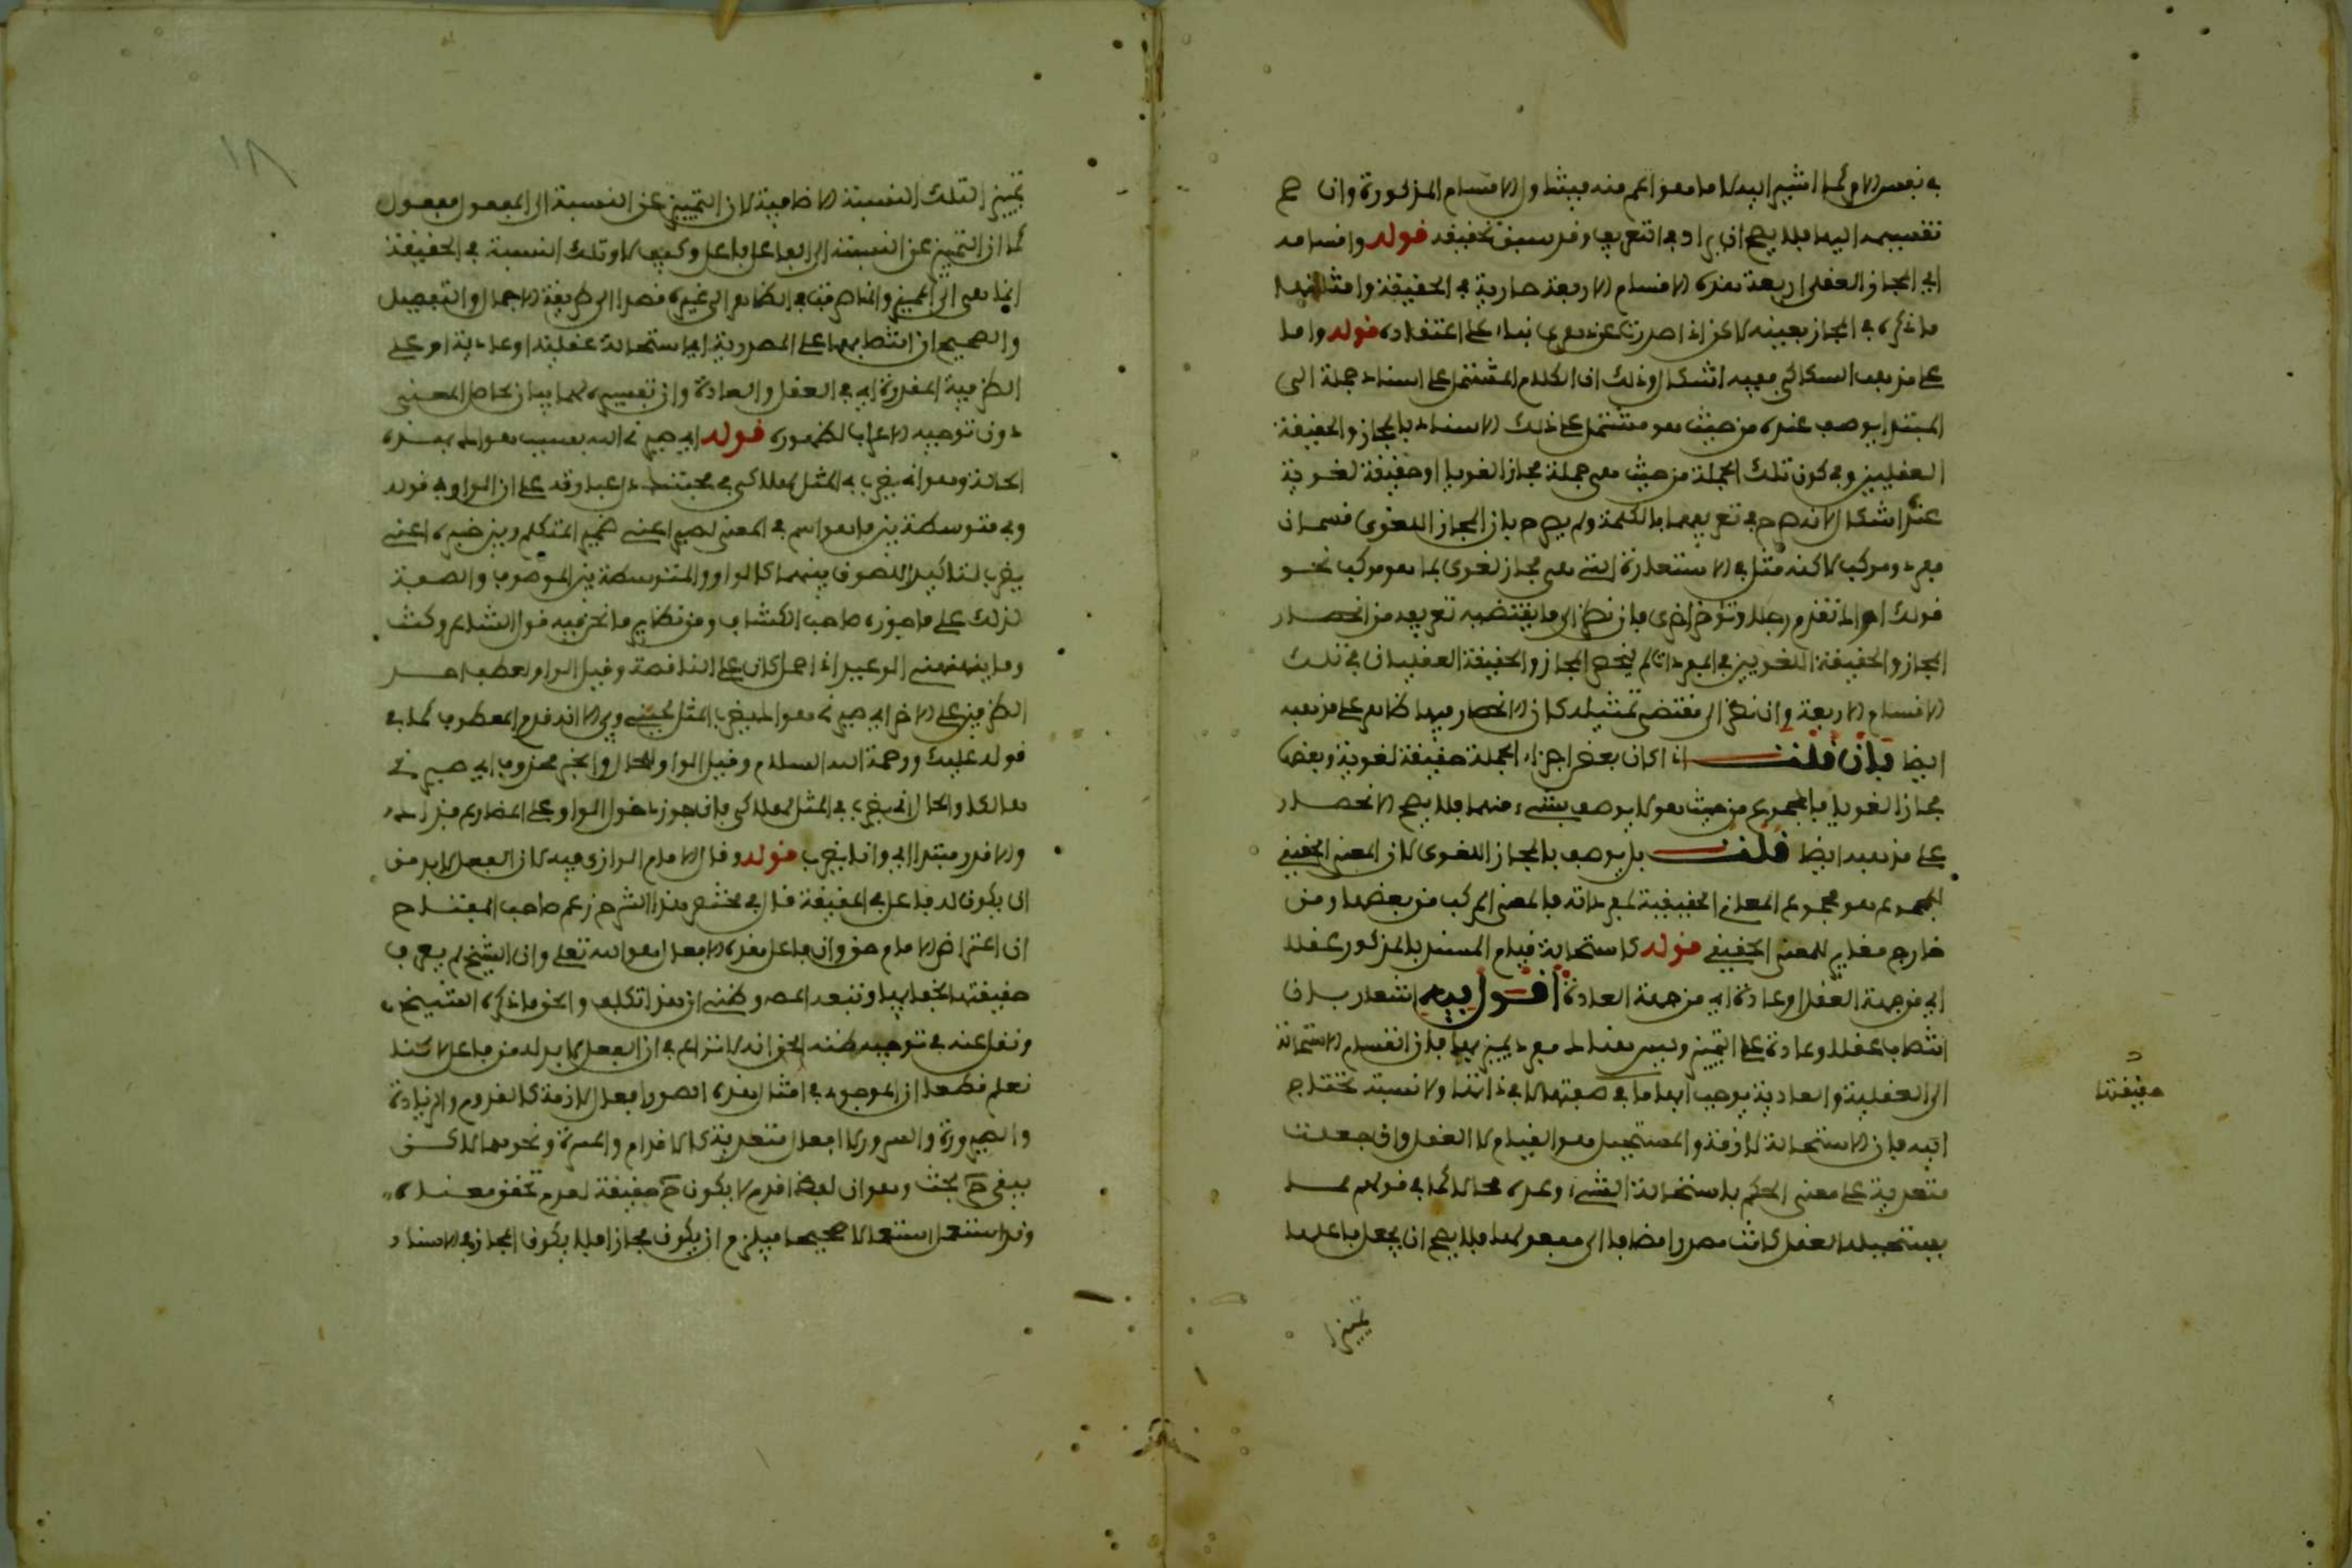 في نفس الامر كما اشير اليه لا ما هو اعم منه فيتناول الاقسام المذكورة وان صح
تقسيمه اليها فلا يصح ان يراد في التعريف وقد سبق تحقيقه قوله واقسامه
اي المجاز العقلي اربعة هذه الاقسام الاربعة جارية في الحقيقة وامثلتها
ما ذكره في المجاز بعينه لاكن اذا صدرت عن دهري بناء على اعتقاده قوله واما
على مذهب السكاكي ففيه اشكال وذلك ان الكلام المشتمل على اسناد جملة الى
المبتدا يوصف عنده من حيث هو مشتمل على ذلك الاسناد بالمجاز والحقيقة
العقليين وفي كون تلك الجملة من حيث هي جملة مجازا لغويا او حقيقة لغوية
عنده اشكال لانه صرح في تعريفهما بالكلمة ولم يصرح بان المجاز اللغوي قسمان
مفرد ومركب لاكنه مثل في الاستعارة التي هي مجاز لغوي بما هو مركب نحو
قولك اراك تقدم رجلا وتؤخر اخرى فان نظر الى ما يقتضيه تعريفه من انحصار
المجاز والحقيقة اللغويين في المفردات لم ينحصر المجاز والحقيقة العقليان في تلك
الاقسام الاربعة وان نظر الى مقتضى تمثيله كان الانحصار فيها ظاهر على مذهبه
ايضا فان قلت اذا كان بعض اجزاء الجملة حقيقة لغوية وبعضها
مجازا لغويا فالمجموع من حيث هو لا يوصف بشيء منهما فلا يصح الانحصار
على مذهبه ايضا قلت بل يوصف بالمجاز اللغوي لان المعنى الحقيقي
للمجموع هو مجموع المعاني الحقيقية لمفرداته فالمعنى المركب من بعضها ومن
خارج مغاير للمعنى الحقيقي قوله كاستحالة قيام المسند بالمذكور عقلا
اي من جهة العقل او عادة اي من جهة العادة اقول فيه اشعار بان
انتصاب عقلا وعادة على التمييز وليس هناك مفرد يميز بهما فان انقسام الاستحالة
الى العقلية والعادية يوجب ابهاما في صفتها لا في ذاتها ولا نسبة تحتاج
اليه فان الاستحالة لازمة والمستحيل هو القيام لا العقل وان جعلت
متعدية على معنى الحكم باستحالة الشيء وعده محالا كما في قولهم مما
يستحيله العقل كانت مصدرا مضافا الى مفعولها فلا يصح ان يجعل فاعلها
تمييزا
حقيقتها
١٨
تمييزا لتلك النسبة الاضافية لان التمييز عن النسبة الى المفعول مفعول
كما ان التمييز عن النسبة الى الفاعل فاعل وكيف لا وتلك النسبة في الحقيقة
انما هي الى المميز وانما صرفت في الظاهر الى غيره قصدا الى طريقة الاجمال والتفصيل
والصحيح ان انتصابهما على المصدرية اي استحالة عقلية او عادية او على
الظرفية المقدرة اي في العقل والعادة وان تفسيره لهما بيان لحاصل المعنى
دون توجيه الاعراب لظهوره قوله اي صيرني الله بسبب هواك بهذه
الحالة وهو اني يضرب بي المثل لهلاكي في محبتك اعباوقه على ان الواو في قوله
وبي متوسطة بين ما هو اسم في المعنى لصير اعني ضمير المتكلم وبين خبره اعني
يضرب لتاكيد اللصوق بينهما كالواو المتوسطة بين الموصوف والصفة
لذلك على ما جوزه صاحب الكشاف ومن نظاير ما نحن فيه قول الشاعر وكنت
وما ينهنهني الوعيد اذا حمل كان على الناقصة وقيل الواو لعطف احد
الظرفين على الاخر اي صيرني هواك يضرب المثل لحيني وبي الا انه قدم المعطوف كما في
قوله عليك ورحمة الله السلام وقيل الواو للحال والخبر محذوف اي صيرني
هالكا والحال انه يضرب بي المثل لهلاكي فان جوز دخول الواو على المضارع فذاك
والا قدر مبتدا اي وانا يضرب قوله وقال الامام الرازي فيه لان الفعل لا بد من
ان يكون له فاعل في الحقيقة قال في مختصر هذا الشرح زعم صاحب المفتاح
ان اعتراض الامام حق وان فاعل هذه الافعال هو الله تعلى وان الشيخ لم يعرف
حقيقتها لخفايها وتبعه المص وظني ان هذا تكلف والحق ما ذكره الشيخ
ونقل عنه في توجيه ظنه الحق انه لا نزاع في ان الفعل لا بد له من فاعل لاكنا
نعلم قطعا ان الموجود في امثال هذه الصور افعال لازمة كالقدوم والزيادة
والصيرورة والسرور لا افعال متعدية كالاقدام والمسرة ونحوهما لاكن
يبقى ح بحث وهو ان لفظ اقدم لا يكون ح حقيقة لعدم تحقق معناه
وقد استعمل استعمالا صحيحا فيلزم ان يكون مجازا فلا يكون المجاز في الاسناد